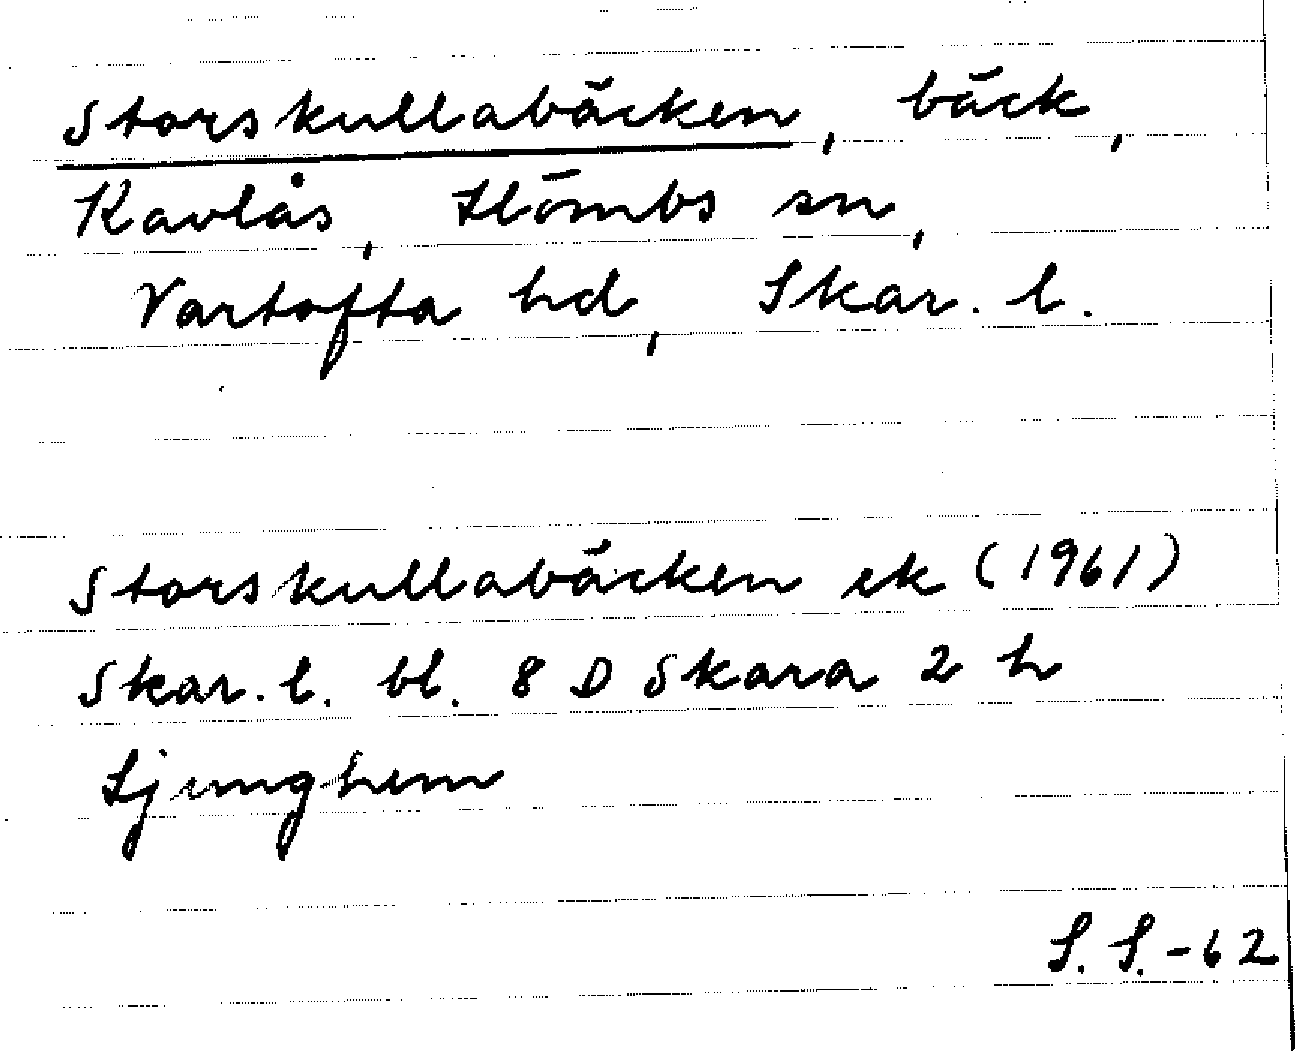 Storskullabäcken, bäck,
Kavlås, Hömbs sn,
Vartofta hd, Skar. l.
Storskullabäcken ek (1961)
Skar. l. bl. 8 D Skara 2 h
Ljunghem
S. S. -62